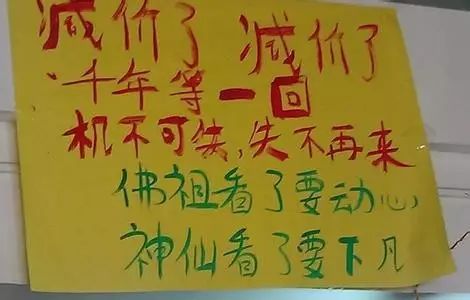 减价了 减价了
千年等一回
机不可失,失不再来
佛祖看了要动心
神仙看了要下凡